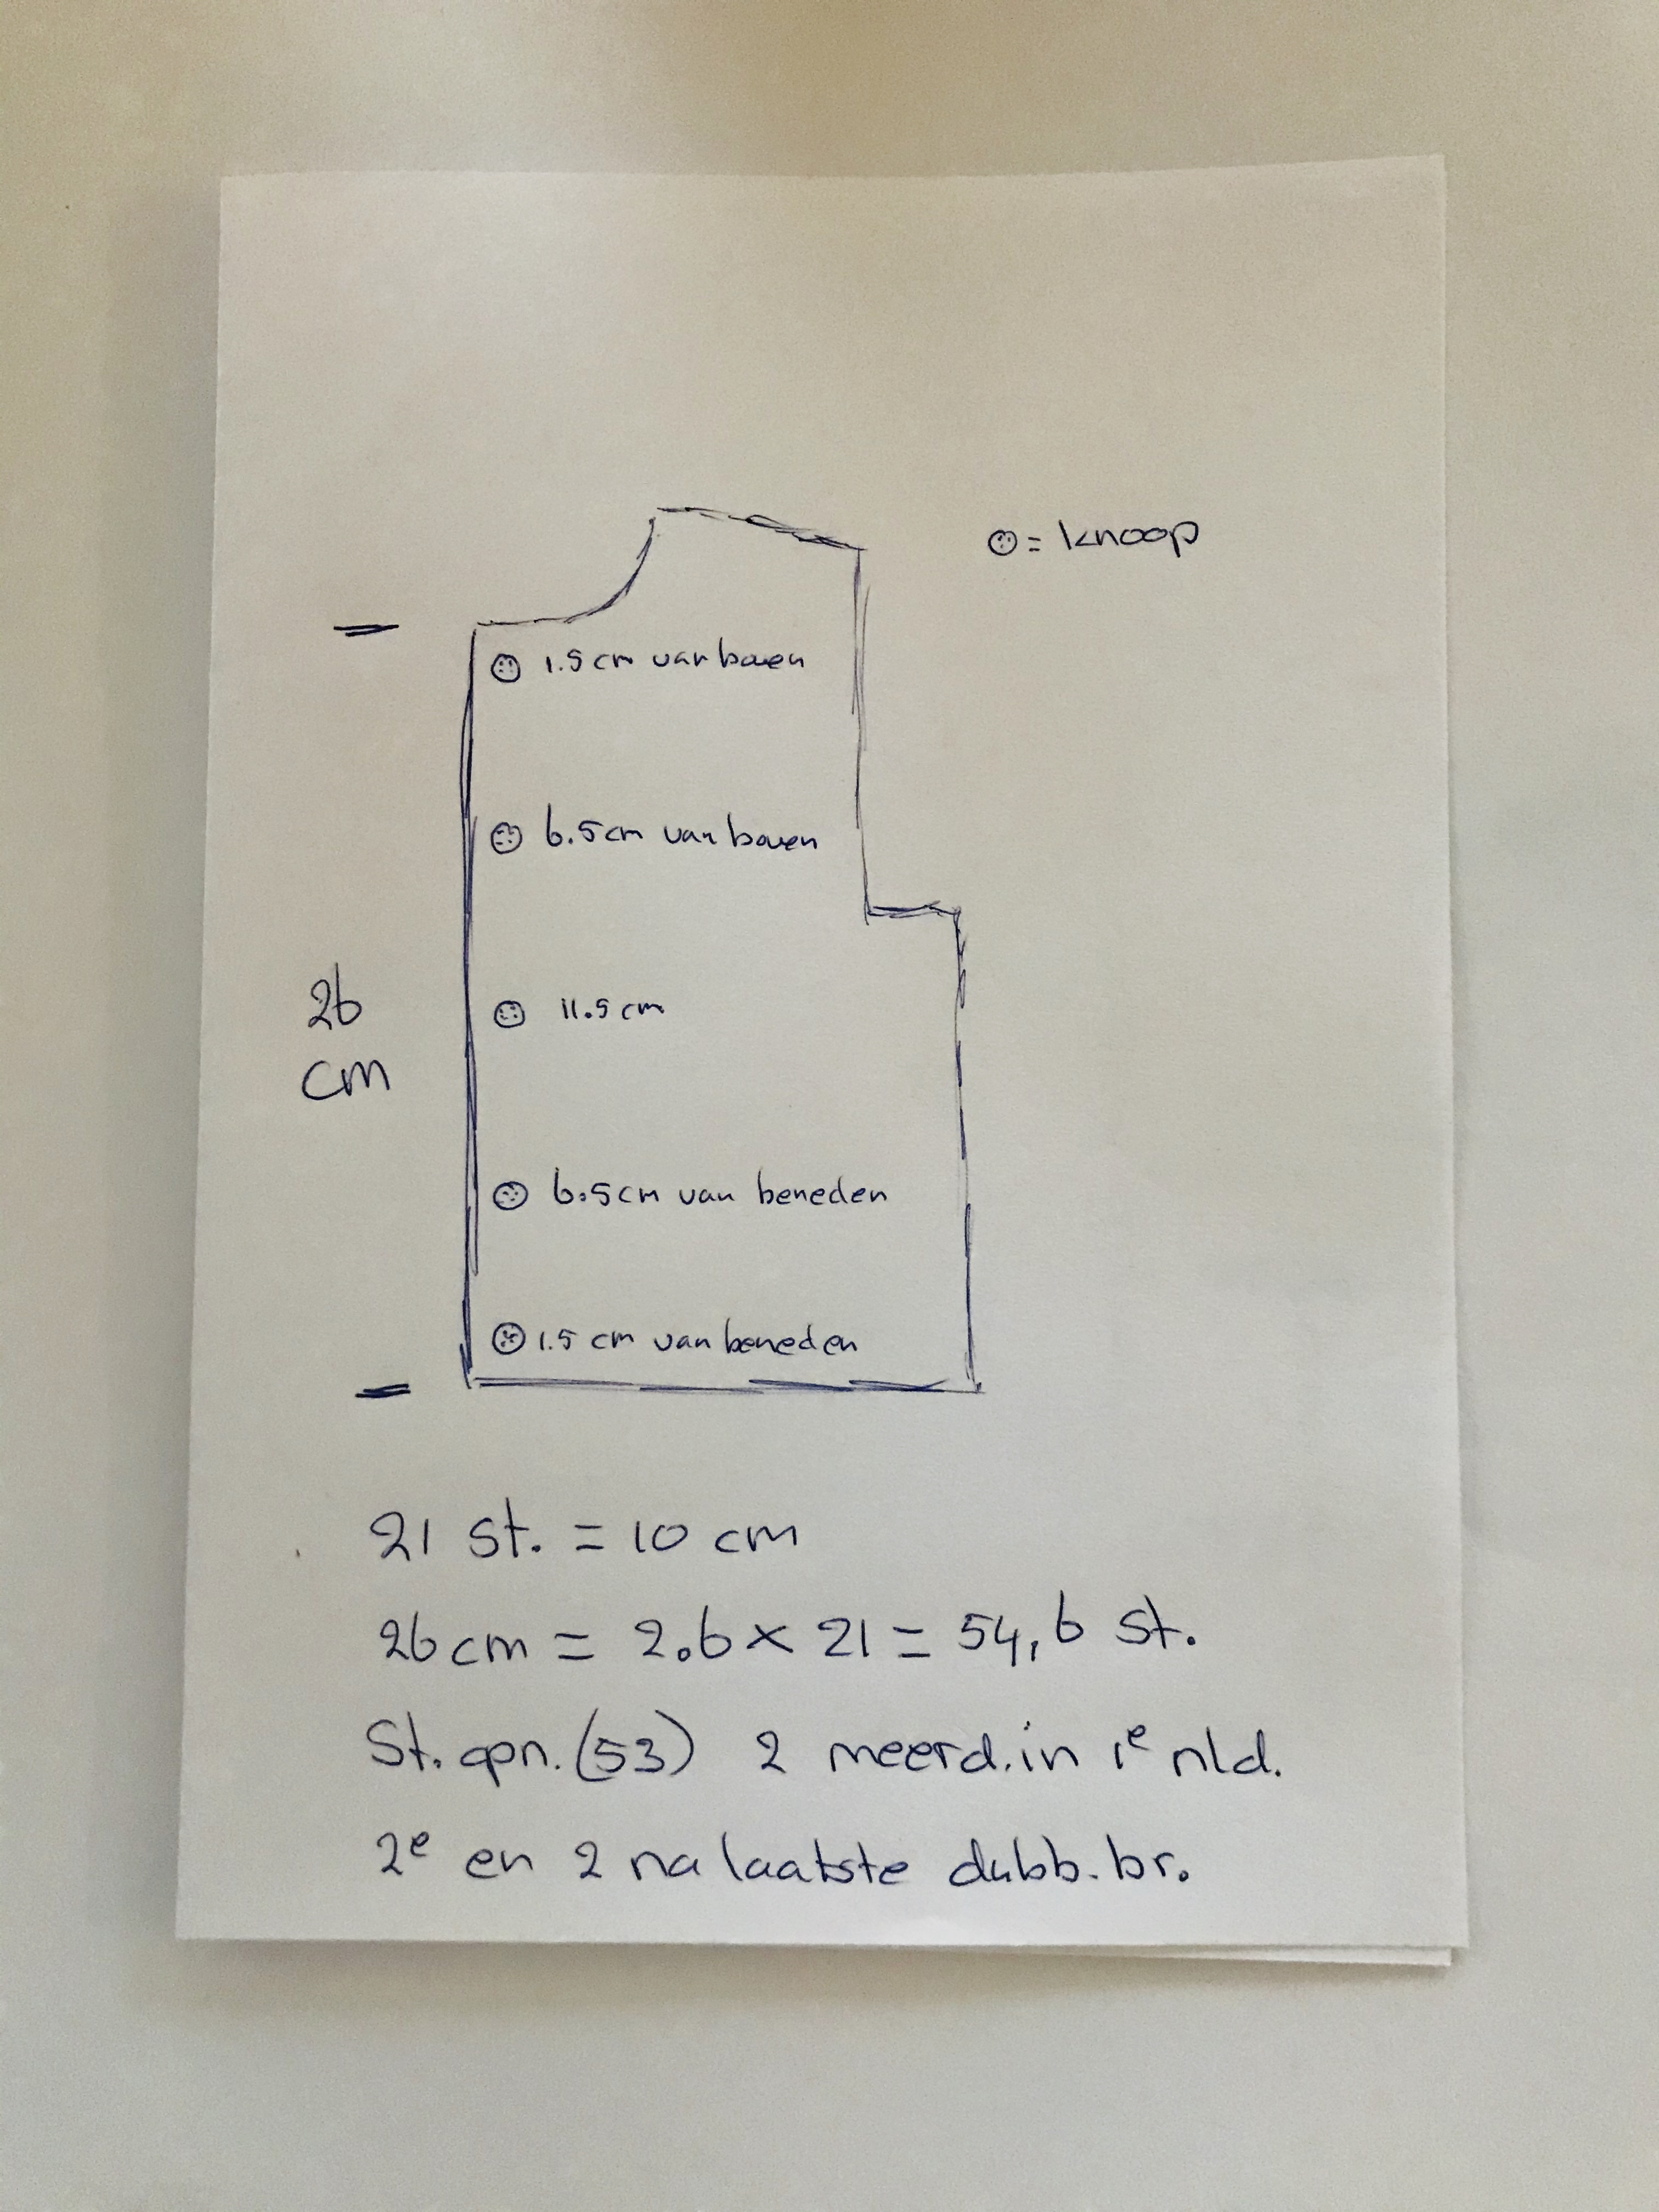 = knoop
1.5 cm van boven
6.5 cm van boven
26
cm
11.5 cm
6.5 cm van beneden
1.5 cm van beneden
21 st. = 10 cm
26 cm = 2.6 x 21 = 54,6 st.
St. opn. (53) 2 meerd. in 1e nld.
2e en 2 na laatste dubb. br.